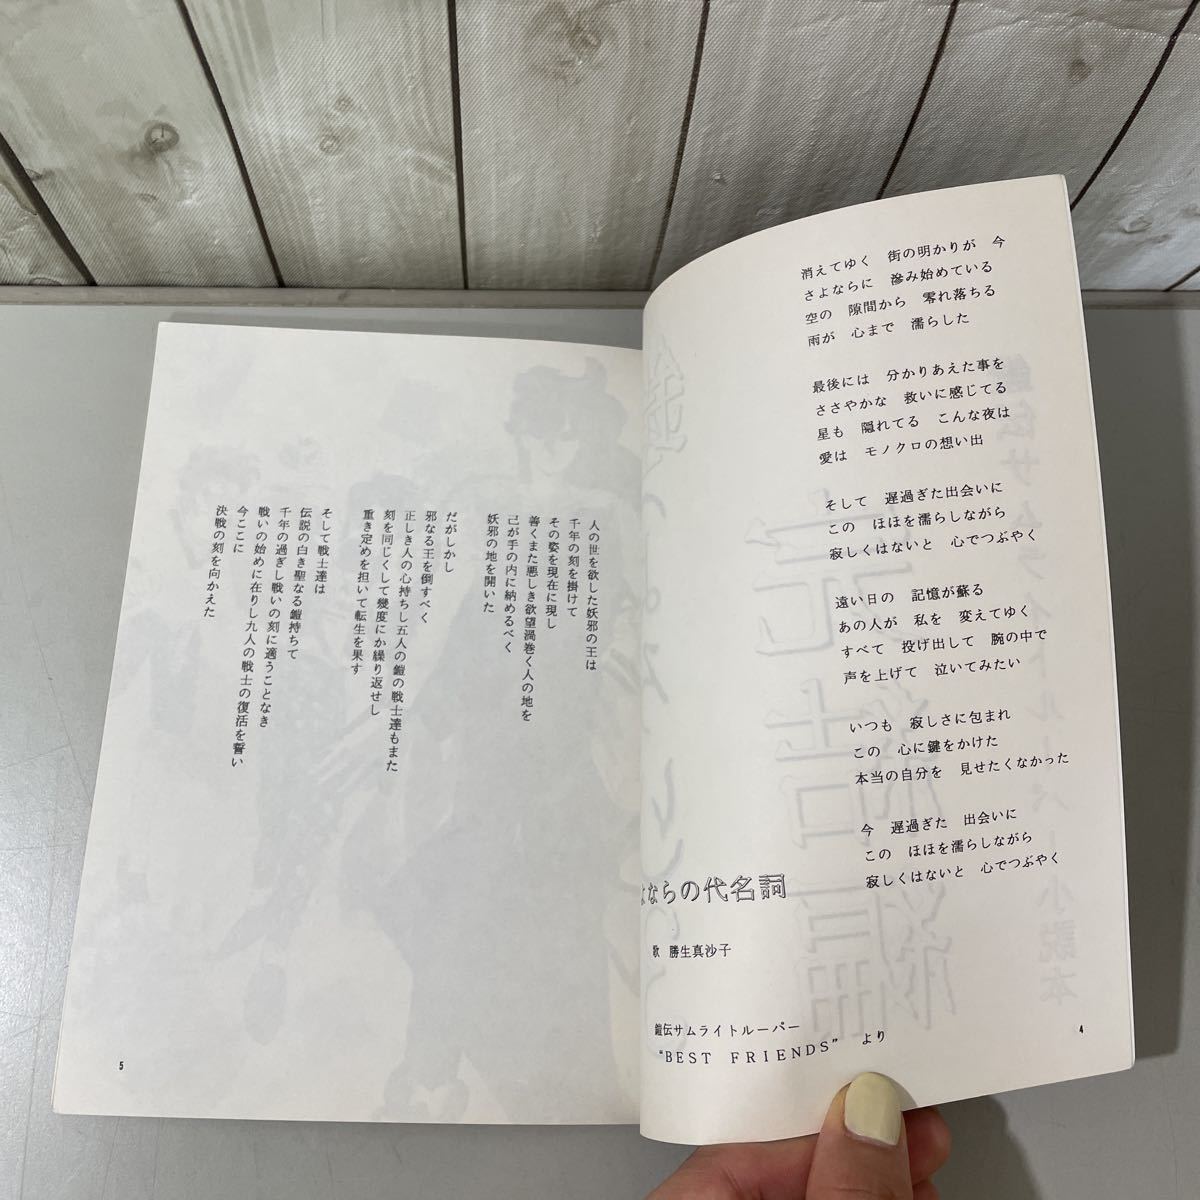 消えてゆく　街の明かりが　今
さよならに　滲み始めている
空の　隙間から　零れ落ちる
雨が　心まで　濡らした
最後には　分かりあえた事を
ささやかな　救いに感じてる
星も　隠れてる　こんな夜は
愛は　モノクロの想い出
そして　遅過ぎた出会いに
この　ほほを濡らしながら
寂しくはないと　心でつぶやく
遠い日の　記憶が蘇る
あの人が　私を　変えてゆく
すべて　投げ出して　腕の中で
声を上げて　泣いてみたい
いつも　寂しさに包まれ
この　心に鍵をかけた
本当の自分を　見せたくなかった
今　遅過ぎた　出会いに
この　ほほを濡らしながら
寂しくはないと　心でつぶやく
よならの代名詞
歌　勝生真沙子
鎧伝サムライトルーパー
“BEST　FRIENDS”　より
4
人の世を欲した妖邪の王は
千年の刻を掛けて
その姿を現在に現し
善くまた悪しき欲望渦巻く人の地を
己が手の内に納めるべく
妖邪の地を開いた
だがしかし
邪なる王を倒すべく
正しき人の心持ちし五人の鎧の戦士達もまた
刻を同じくして幾度にか繰り返せし
重き定めを担いて転生を果す
そして戦士達は
伝説の白き聖なる鎧持ちて
千年の過ぎし戦いの刻に適うことなき
戦いの始めに在りし九人の戦士の復活を誓い
今ここに
決戦の刻を向かえた
5